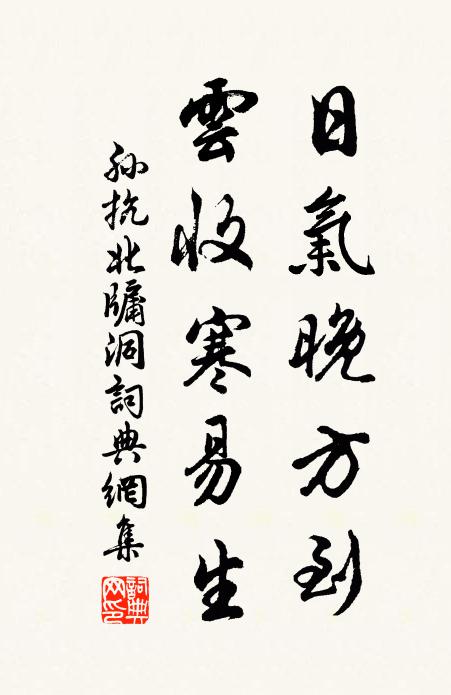 日氣晚方到
雲收寒易生
孫抗北牖洞詞典網集
詞典網印